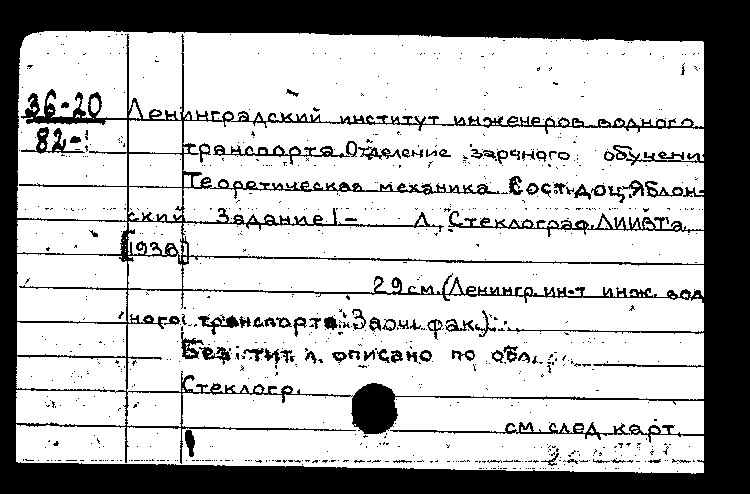 36-20
82-
Ленинградский институт инженеров водного
транспорта. Отделение заочного обучени
Теоретическая механика Сост. доц. Яблон-
ский Задание 1- Л., Стеклограф. ЛИИВТ'а,
[1936]
29 см. (Ленингр. ин-т инж. вод
ного транспорта. Заочн. фак.).
Без тит. л. описано по обл.
Стеклогр.
см. след. карт.